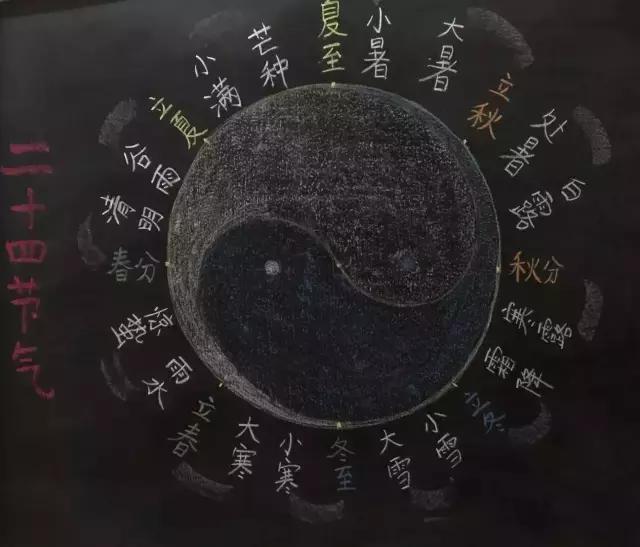 二十四节气
夏至
小暑
大暑
立秋
处暑
白露
秋分
寒露
霜降
立冬
小雪
大雪
冬至
小寒
大寒
立春
雨水
惊蛰
春分
清明
谷雨
立夏
小满
芒种